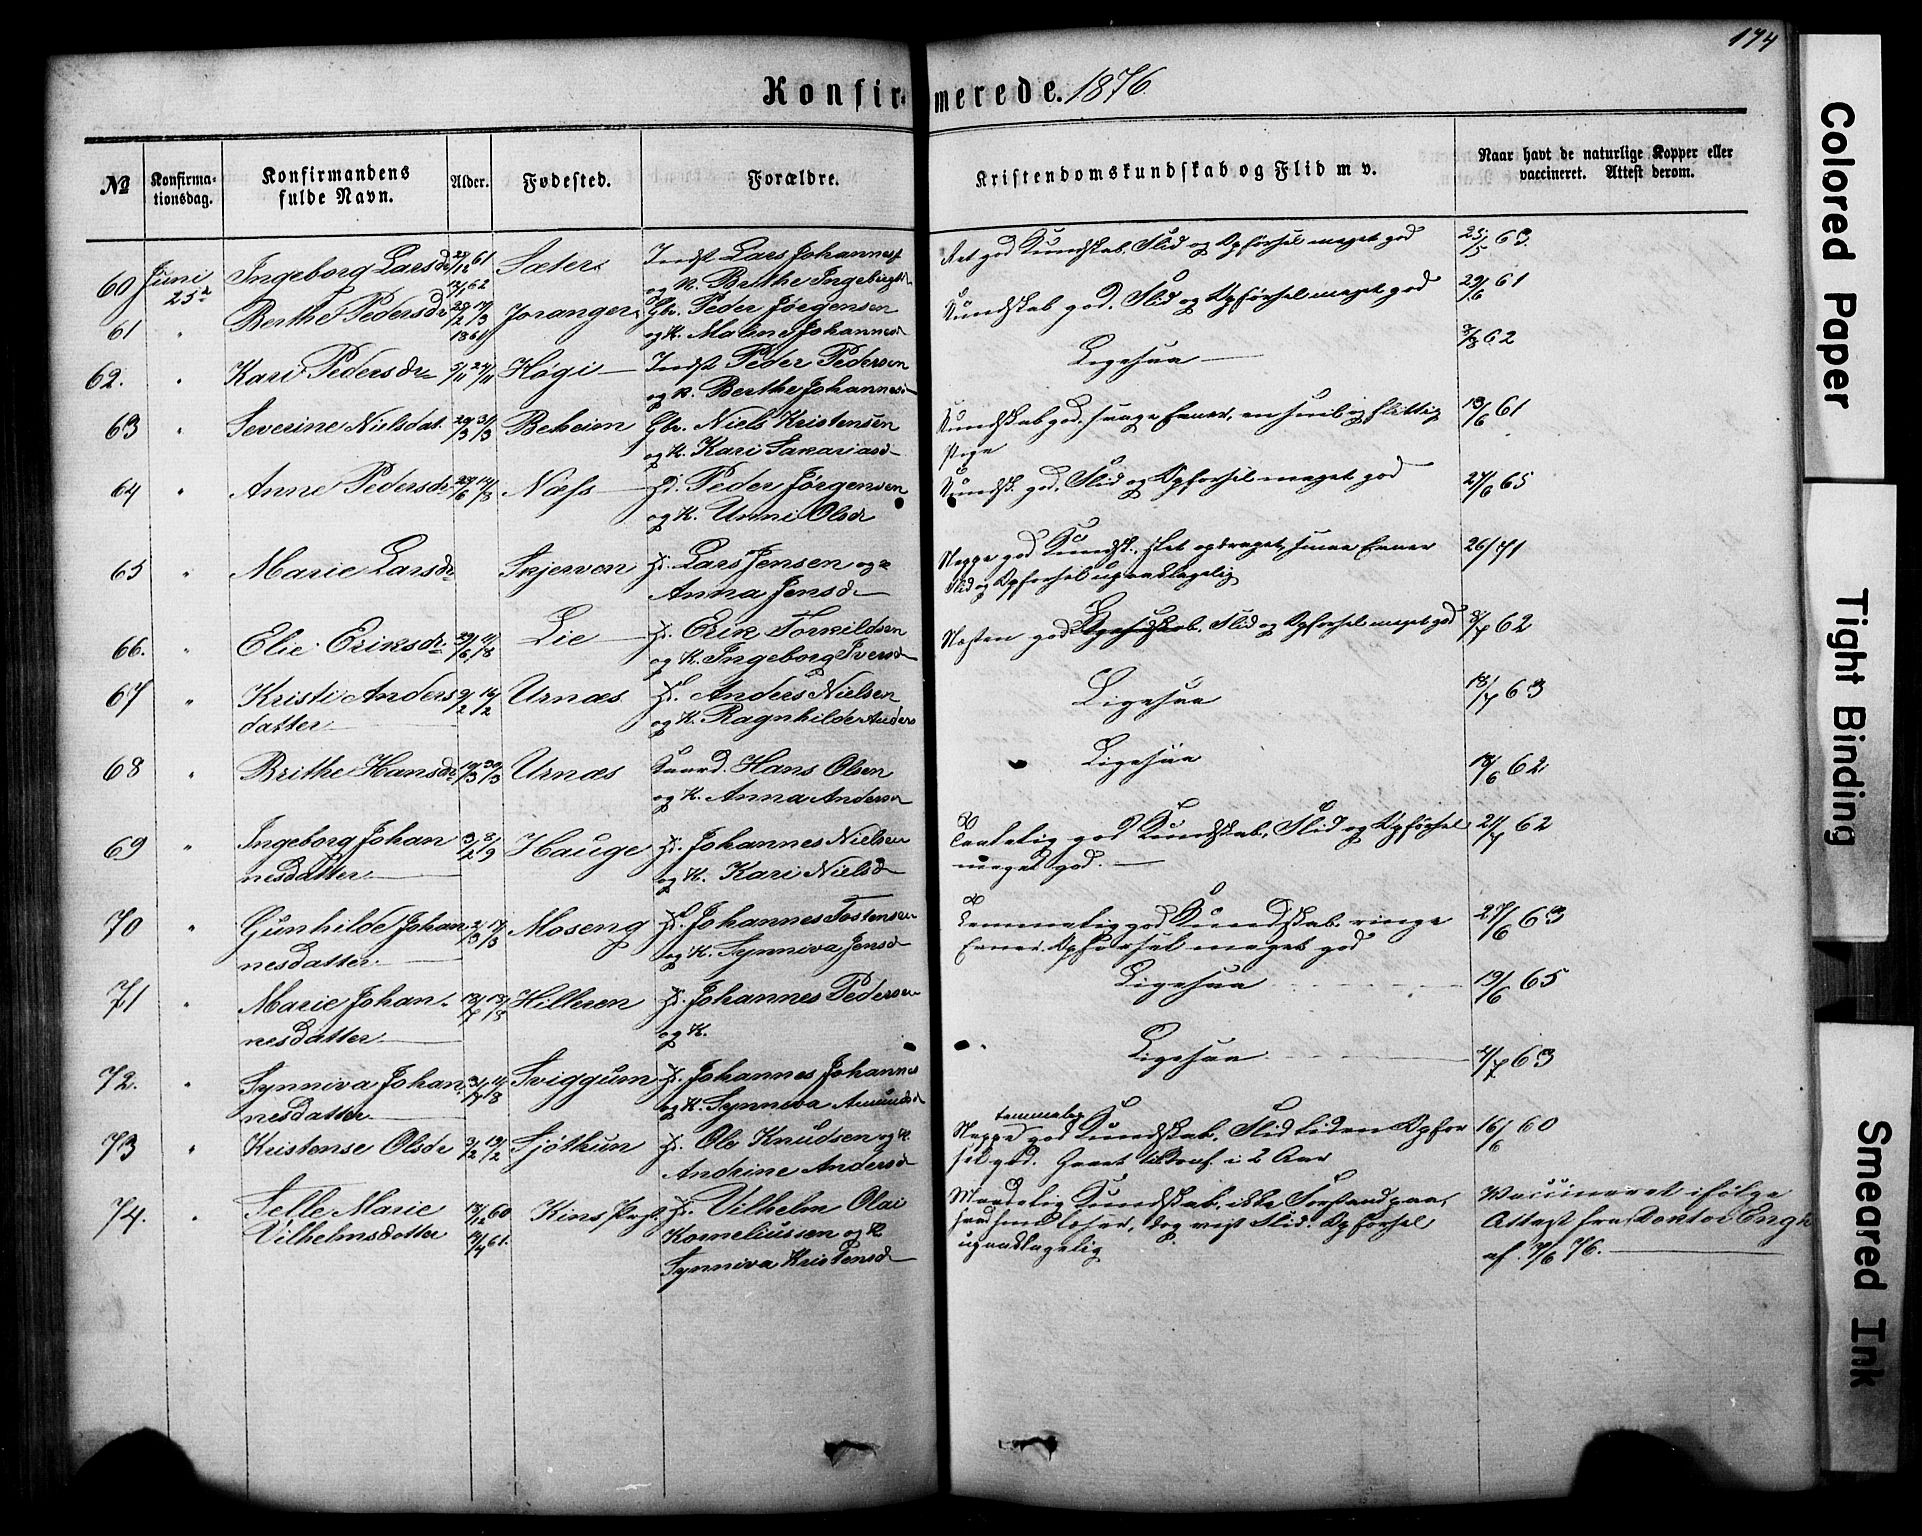 174
Konfirmerede. 1876
№
Konfirma-
tionsdag.
Konfirmandens
fulde Navn.
Alder.
Fødested.
Forældre.
Kristendomskundskab og Flid m v.
Naar havt de naturlige Kopper eller
vaccineret. Attest derom.
60 Juni 25de Ingeborg Larsdr 61 62 Sæter Indst Lars Johannes
og K. Brithe Ingebrigtsd
Ret god Kundskab, Flid og Opførsel meget god 25/5 63.
61 " Berthe Pedersdr Joranger Gbr. Peder Jørgensen
og K. Malene Johannesd
Kundskab god. Flid og Opførsel meget god 29/6 61
62. " Kari Pedersdr 5/11 24/11 Høgi Indst Peder Pedersen
og K. Berthe Johannesd
Ligesaa 62
63 " Severine Nielsdat. 29/3 31/3 Beheim Gbr. Niels Kristensen
og K. Kari Sakariasd
Kundskab god, svage Evner, en snil og flittig
Pige
13/6 61
64 " Anne Pedersdr 29/6 14/8 Næss Hd. Peder Jørgensen
og K. Unni Olsdr
Kundsk. god, Flid og Opførsel meget god 27/6 65
65 " Marie Larsdr Skjerven Hd. Lars Jensen og
Anna Jensd
Neppe god Kundsk., slet opdraget, smaa Evner
Flid og Opførsel upaaklagelig
26/ 71
66. " Elie Eriksdr 29/6 11/8 Lie Hd. Erik Torkildsen
og K. Ingeborg Iversd
Næsten god Kundskab, Flid og Opførsel meget god 62
67 " Kristi Anders
datter 9/2 16/2 Urnæs Hd. Anders Nielsen
og K. Ragnhilde Anders
Ligesaa 18/7 63
68 " Brithe Hansdr 19/3 30/3 Urnæs Hans Olsen
og K. Anna Andersd
Ligesaa 18/6 62
69 " Ingeborg Johan
nesdatter Hauge Hd. Johannes Nielsen
og K. Kari Nielsd
god Kundskab, Flid og Opførsel
meget god.
21/7 62
70 " Gunhilde Johan
nesdatter 2/3 17/3 Moseng Hd. Johannes Tostensen
og K. Synniva Jensd
Temmelig god Kundskab, ringe
Evner. Opførsel meget god
27/6 63
71 " Marie Johan
nesdatter Hilleren Hd. Johannes Pedersen
og K.
Ligesaa 19/6 65
72. " Synniva Johan
nesdatter Sviggum Hd. Johannes Johannes
og K. Synniva Amundsd
Ligesaa 63
73 " Kristense Olsdr 3/2 19/2 Sjøthun Hd. Ole Knudsen og K.
Andrine Andersd
temmelig
Neppe god Kundskab, Flid liden Opfør
sel god. Gaaet til Konf. i 2 Aar
16/6 60
74. " Selle Marie
Vilhelmsdatter 60 61. Kins Prgj. Hd. Vilhelm Olai
Korneliussen og K
Synniva Kristensd
Maadelig Kundskab, ikke Forstand paa,
hvad hun læser, dog vist Flid. Opførsel
upaaklagelig
Vaccineret ifølge
Attest fra Doktor Engh
af 76.
Colored Paper
Tight Binding
Smeared Ink